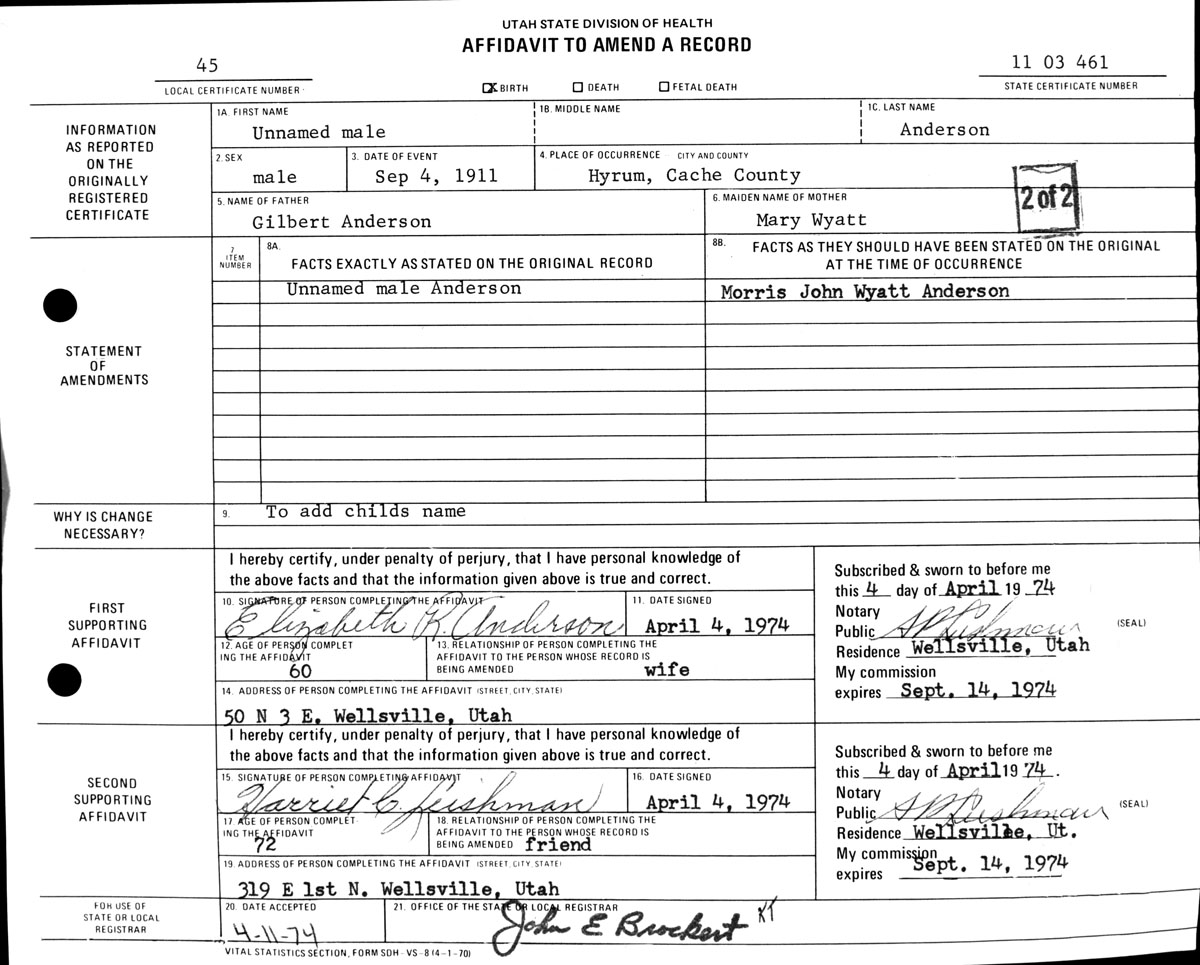 UTAH STATE DIVISION OF HEALTH
AFFIDAVIT TO AMEND A RECORD
45
LOCAL CERTIFICATE NUMBER
X BIRTH DEATH FETAL DEATH
11 03 461
STATE CERTIFICATE NUMBER
INFORMATION
AS REPORTED
ON THE
ORIGINALLY
REGISTERED
CERTIFICATE
1A. FIRST NAME
Unnamed male
1B. MIDDLE NAME
1C. LAST NAME
Anderson
2. SEX
male
3. DATE OF EVENT
Sep 4, 1911
4. PLACE OF OCCURRENCE CITY AND COUNTY
Hyrum, Cache County
2 of 2
5. NAME OF FATHER
Gilbert Anderson
6. MAIDEN NAME OF MOTHER
Mary Wyatt
STATEMENT
OF
AMENDMENTS
7
ITEM
NUMBER
8A.
FACTS EXACTLY AS STATED ON THE ORIGINAL RECORD
8B. FACTS AS THEY SHOULD HAVE BEEN STATED ON THE ORIGINAL
AT THE TIME OF OCCURRENCE
Unnamed male Anderson
Morris John Wyatt Anderson
WHY IS CHANGE
NECESSARY?
9. To add childs name
FIRST
SUPPORTING
AFFIDAVIT
I hereby certify, under penalty of perjury, that I have personal knowledge of
the above facts and that the information given above is true and correct.
10. SIGNATURE OF PERSON COMPLETING THE AFFIDAVIT
Elizabeth R. Anderson
11. DATE SIGNED
April 4, 1974
12. AGE OF PERSON COMPLET
ING THE AFFIDAVIT
60
13. RELATIONSHIP OF PERSON COMPLETING THE
AFFIDAVIT TO THE PERSON WHOSE RECORD IS
BEING AMENDED wife
14. ADDRESS OF PERSON COMPLETING THE AFFIDAVIT (STREET, CITY, STATE)
50 N 3 E. Wellsville, Utah
Subscribed & sworn to before me
this 4 day of April 19 74
Notary
Public S P Leishman (SEAL)
Residence Wellsville, Utah
My commission
expires Sept. 14, 1974
SECOND
SUPPORTING
AFFIDAVIT
I hereby certify, under penalty of perjury, that I have personal knowledge of
the above facts and that the information given above is true and correct.
15. SIGNATURE OF PERSON COMPLETING AFFIDAVIT
Harriet C. Leishman
16. DATE SIGNED
April 4, 1974
17. AGE OF PERSON COMPLET-
ING THE AFFIDAVIT
72
18. RELATIONSHIP OF PERSON COMPLETING THE
AFFIDAVIT TO THE PERSON WHOSE RECORD IS
BEING AMENDED friend
19. ADDRESS OF PERSON COMPLETING THE AFFIDAVIT (STREET, CITY, STATE)
319 E 1st N. Wellsville, Utah
Subscribed & sworn to before me
this 4 day of April 19 74.
Notary
Public S P Leishman (SEAL)
Residence Wellsville, Ut.
My commission
expires Sept. 14, 1974
FOR USE OF
STATE OR LOCAL
REGISTRAR
20. DATE ACCEPTED
4-11-74
21. OFFICE OF THE STATE OR LOCAL REGISTRAR
John E Brockert KT
VITAL STATISTICS SECTION, FORM SDH-VS-8 (4-1-70)